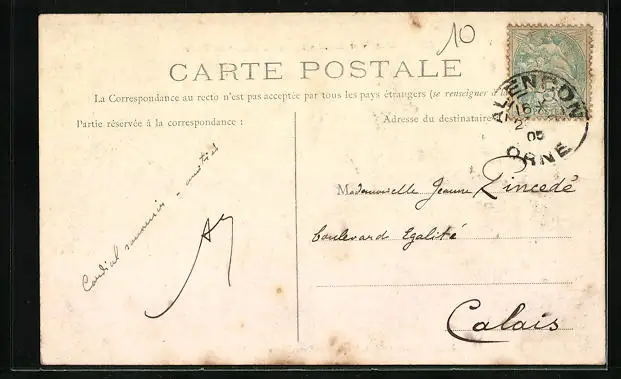 10
CARTE POSTALE
La Correspondance au recto n'est pas acceptée par tous les pays étrangers (se renseigner à la
Partie réservée à la correspondance :
Adresse du destinataire
ALENCON
16
2
05
ORNE
Cordial souvenir - amitiés
Mademoiselle Jeanne Pincedé
boulevard Egalité
Calais